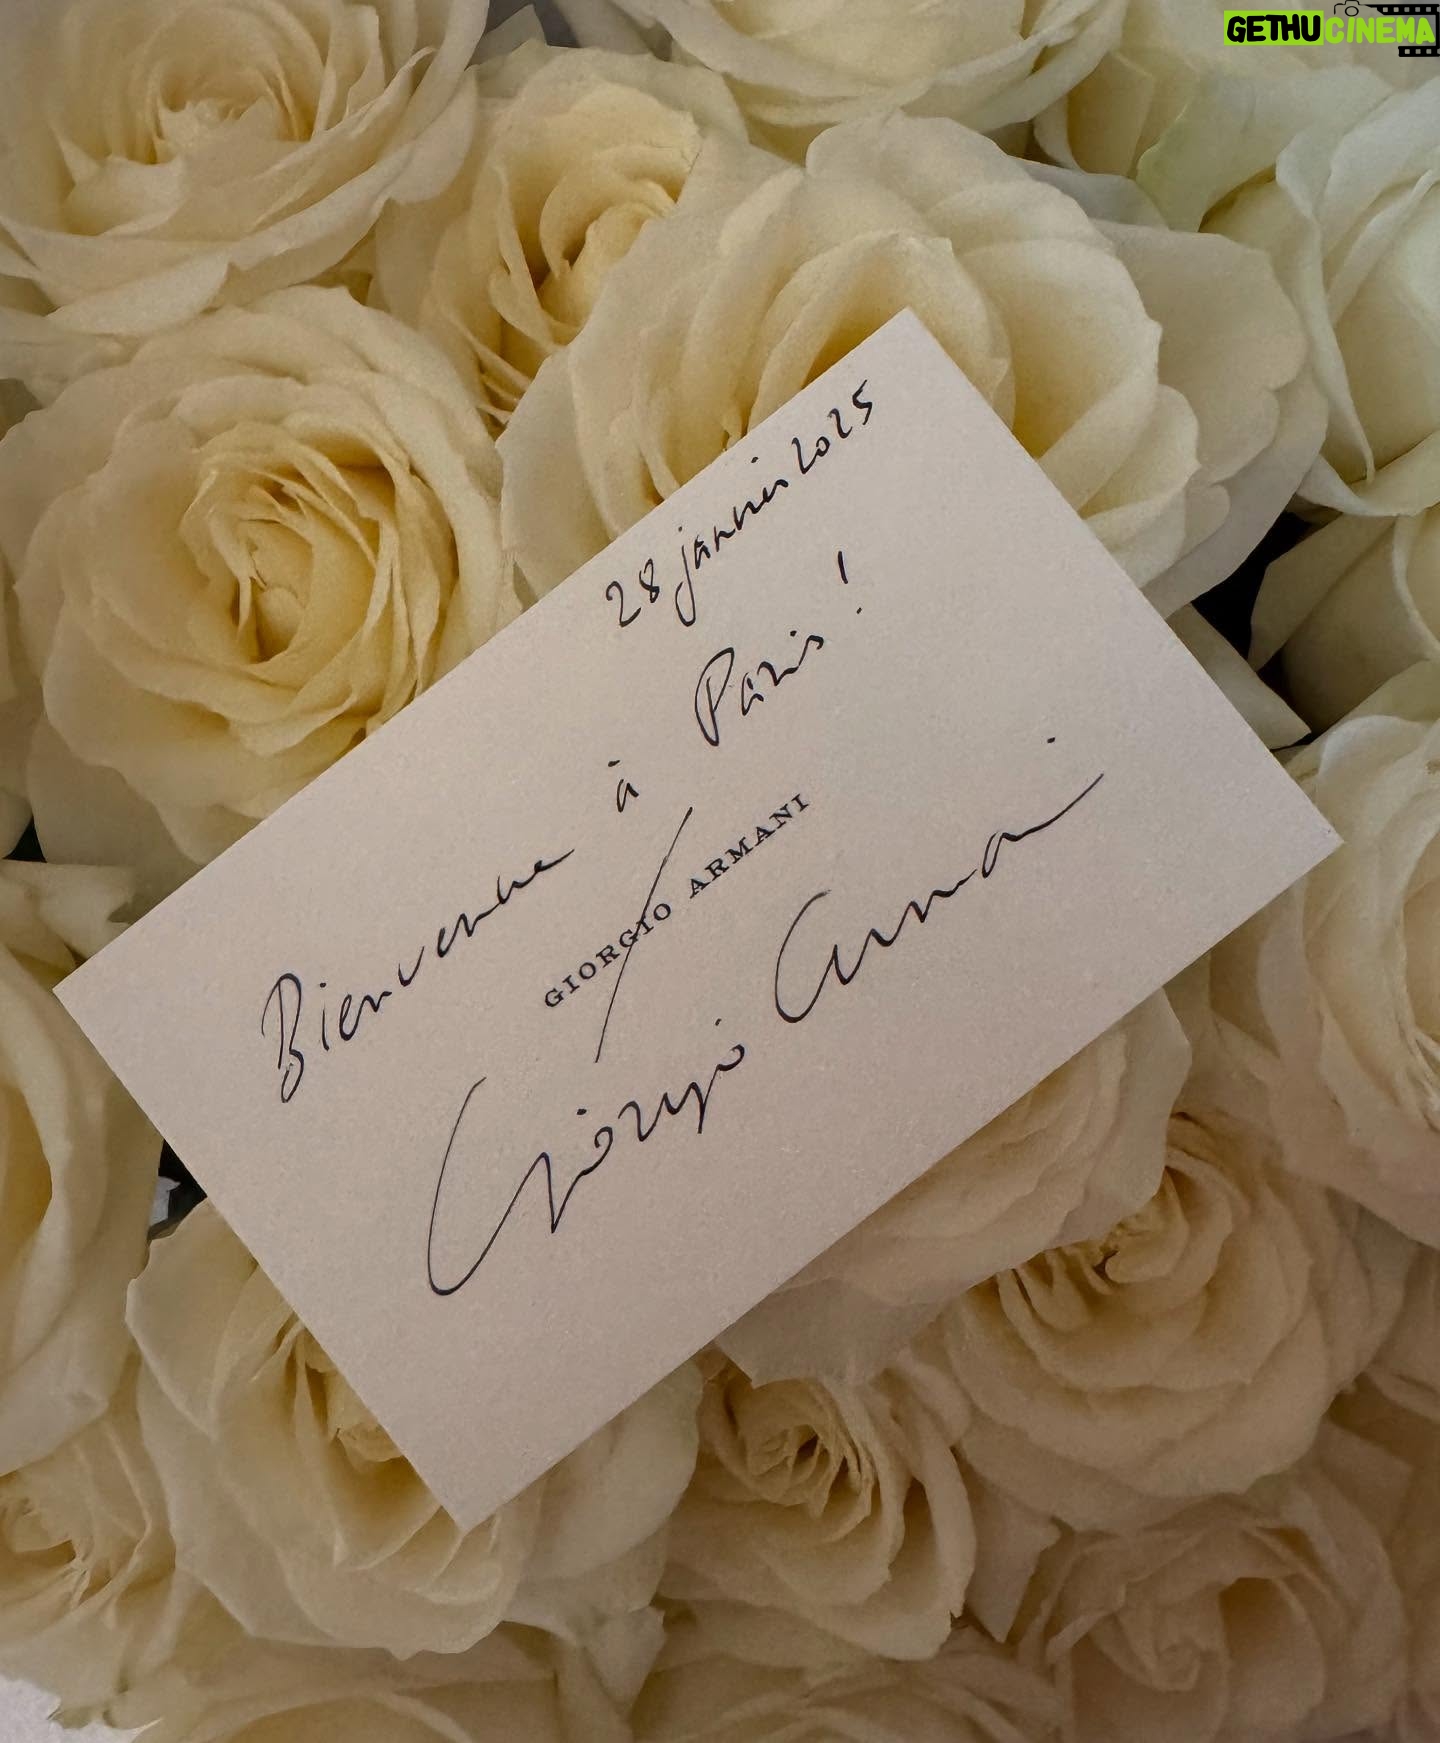 GETHU CINEMA
28 janvier 2025
Bienvenue à Paris !
GIORGIO ARMANI
Giorgio Armani